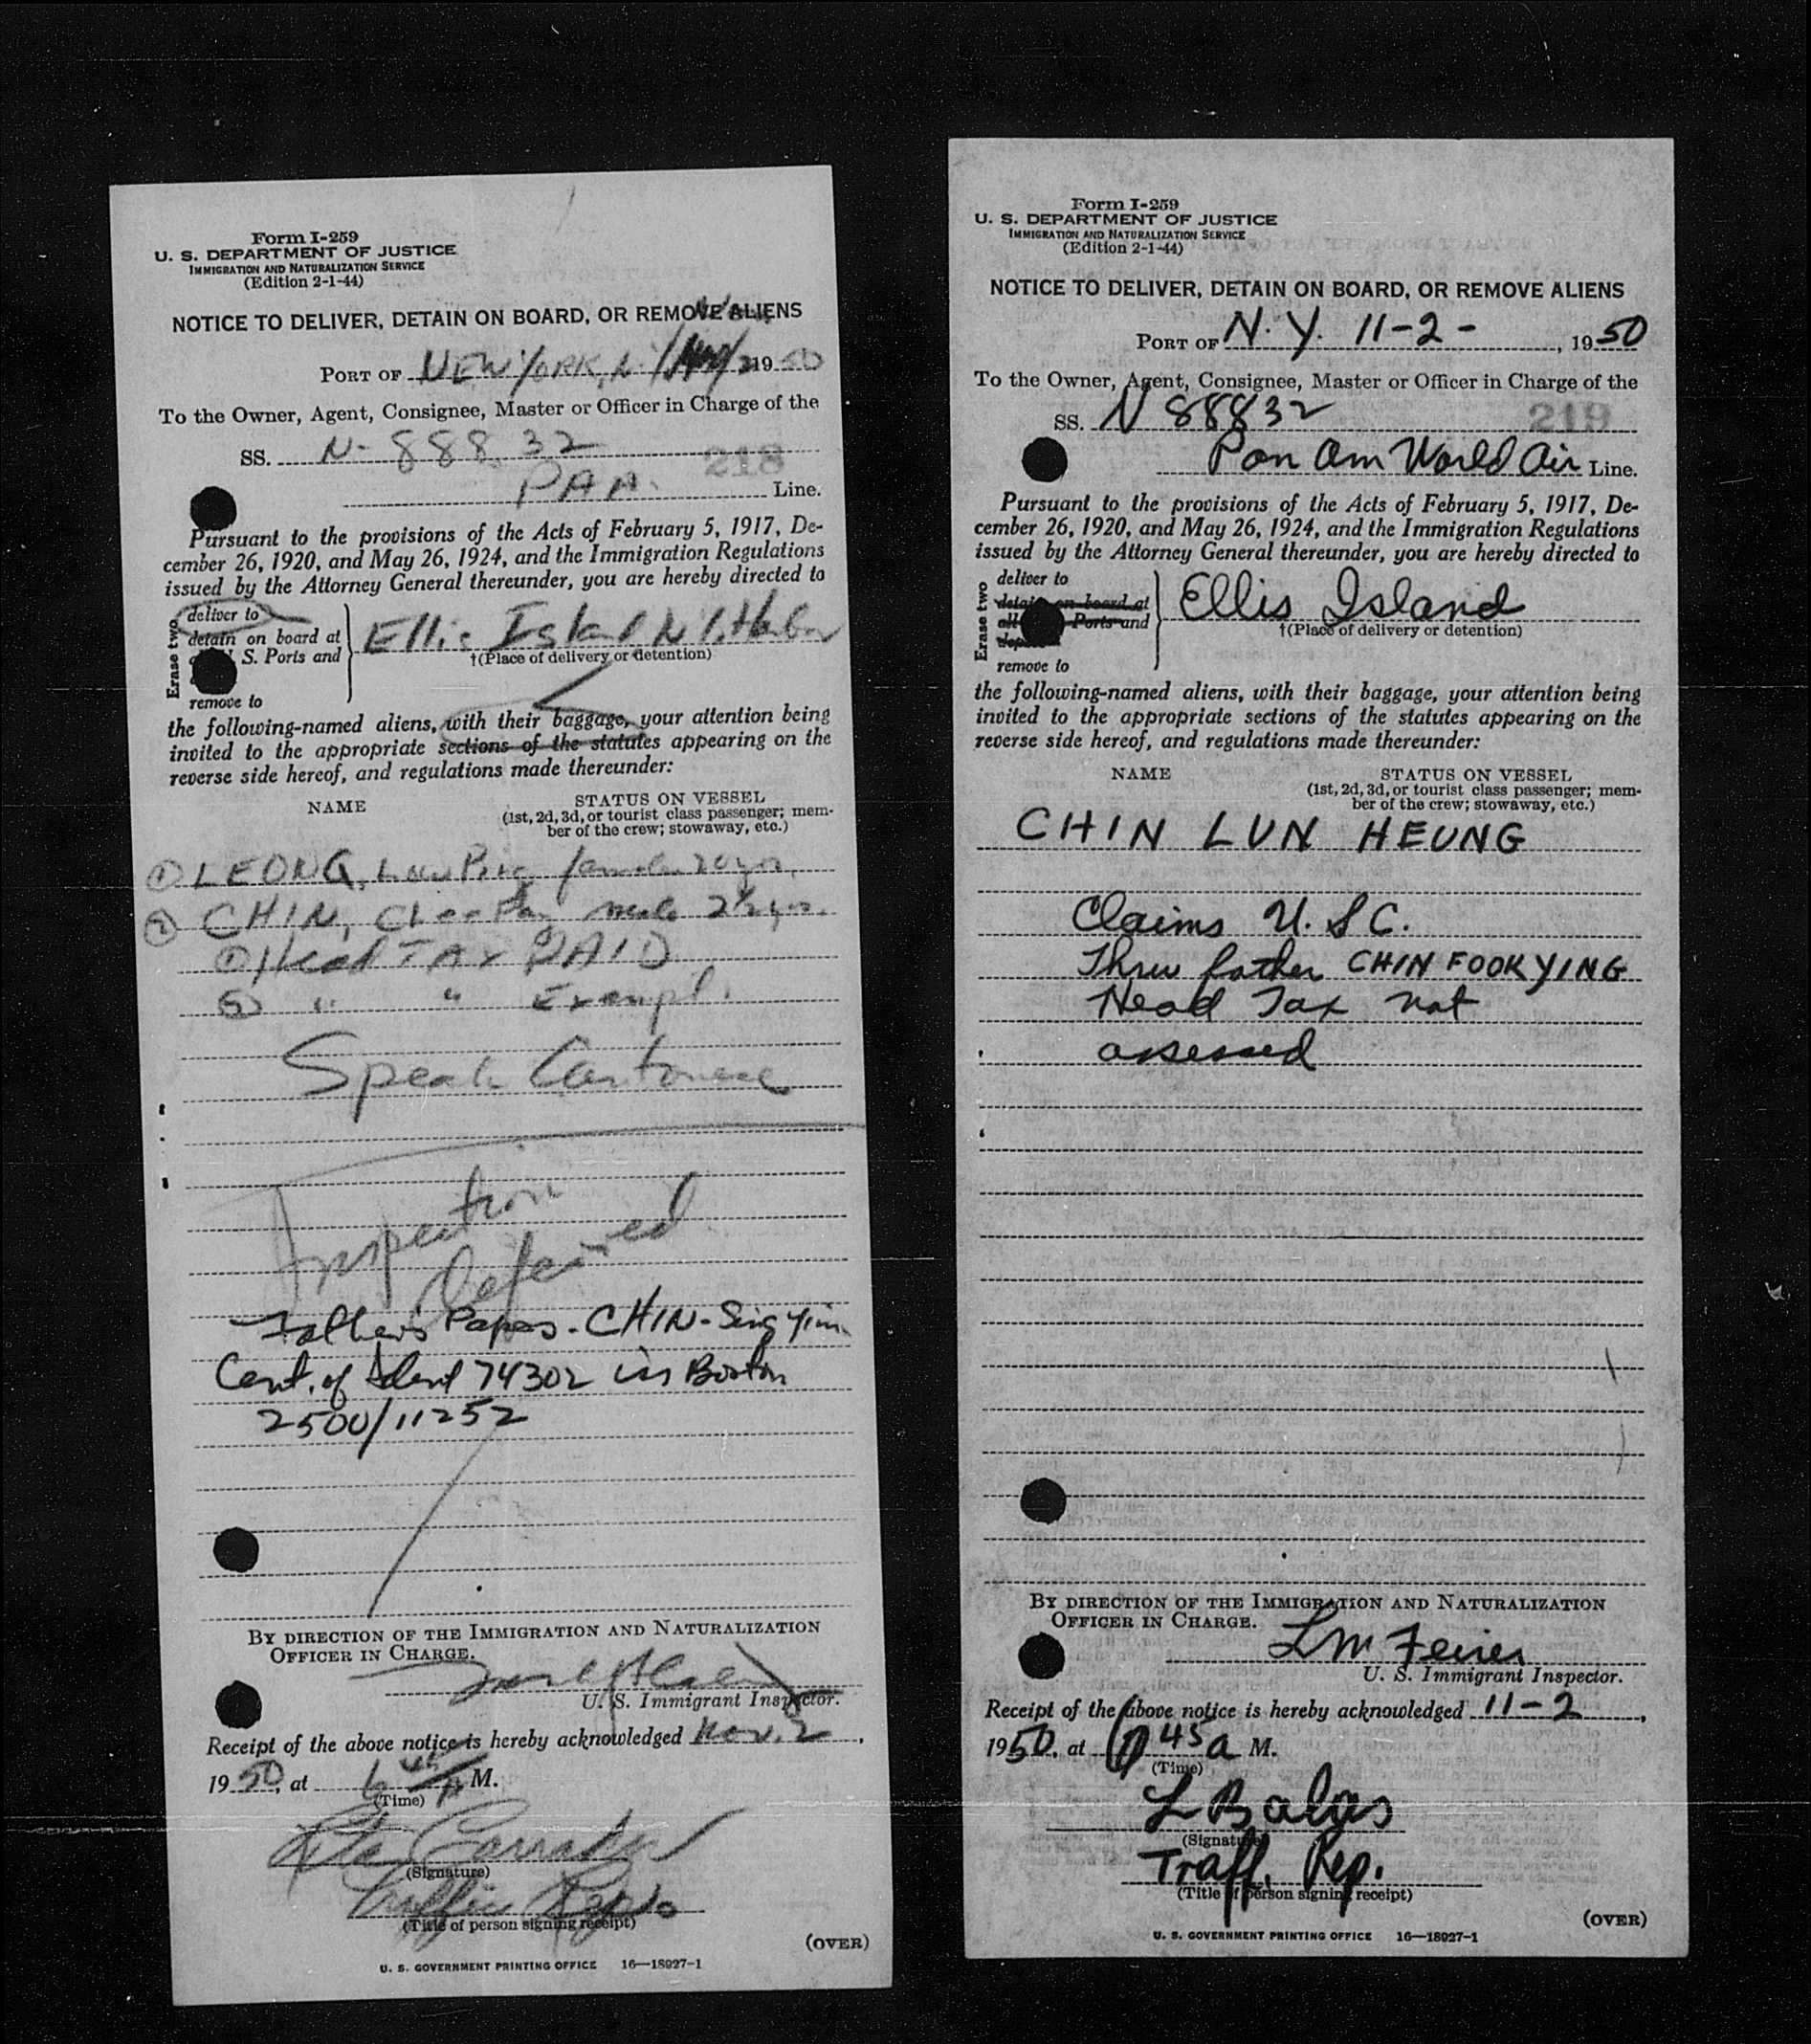 Form I-259
U. S. DEPARTMENT OF JUSTICE
IMMIGRATION AND NATURALIZATION SERVICE
(Edition 2-1-44)
NOTICE TO DELIVER, DETAIN ON BOARD, OR REMOVE ALIENS
PORT OF NEW YORK, N.Y. 2 1950
To the Owner, Agent, Consignee, Master or Officer in Charge of the
SS. N-88832
218
PAA. Line.
Pursuant to the provisions of the Acts of February 5, 1917, De-
cember 26, 1920, and May 26, 1924, and the Immigration Regulations
issued by the Attorney General thereunder, you are hereby directed to
Erase two
deliver to
detain on board at
S. Ports and
remove to
Ellis Island N.Y. Harbor
†(Place of delivery or detention)
the following-named aliens, with their baggage, your attention being
invited to the appropriate sections of the statutes appearing on the
reverse side hereof, and regulations made thereunder:
NAME
STATUS ON VESSEL
(1st, 2d, 3d, or tourist class passenger; mem-
ber of the crew; stowaway, etc.)
① LEONG, female 20 yrs.
② CHIN, male 2½ yrs.
① Head TAX PAID
② " " Exempt.
Speak Cantonese
Inspection
Deferred
Father's Papers - CHIN - Sing Yim
Cert. of Ident 74302 ins Boston
2500/11252
BY DIRECTION OF THE IMMIGRATION AND NATURALIZATION
OFFICER IN CHARGE.
U. S. Immigrant Inspector.
Receipt of the above notice is hereby acknowledged Nov. 2,
1950, at 6 45 A M.
(Time)
(Signature)
Traffic Rep.
(Title of person signing receipt)
(OVER)
U. S. GOVERNMENT PRINTING OFFICE 16—18927-1
Form I-259
U. S. DEPARTMENT OF JUSTICE
IMMIGRATION AND NATURALIZATION SERVICE
(Edition 2-1-44)
NOTICE TO DELIVER, DETAIN ON BOARD, OR REMOVE ALIENS
PORT OF N. Y. 11-2-, 1950
To the Owner, Agent, Consignee, Master or Officer in Charge of the
SS. N 88832
219
Pan Am World Air Line.
Pursuant to the provisions of the Acts of February 5, 1917, De-
cember 26, 1920, and May 26, 1924, and the Immigration Regulations
issued by the Attorney General thereunder, you are hereby directed to
Erase two
deliver to
detain on board at
all Ports and
remove to
Ellis Island
†(Place of delivery or detention)
the following-named aliens, with their baggage, your attention being
invited to the appropriate sections of the statutes appearing on the
reverse side hereof, and regulations made thereunder:
NAME
STATUS ON VESSEL
(1st, 2d, 3d, or tourist class passenger; mem-
ber of the crew; stowaway, etc.)
CHIN LUN HEUNG
Claims U.S.C.
Thru father CHIN FOOK YING
Head Tax not
assessed
BY DIRECTION OF THE IMMIGRATION AND NATURALIZATION
OFFICER IN CHARGE.
L M
U. S. Immigrant Inspector.
Receipt of the above notice is hereby acknowledged 11-2,
1950, at 45 a M.
(Time)
L
(Signature)
Traff. Rep.
(Title of person signing receipt)
(OVER)
U. S. GOVERNMENT PRINTING OFFICE 16—18927-1